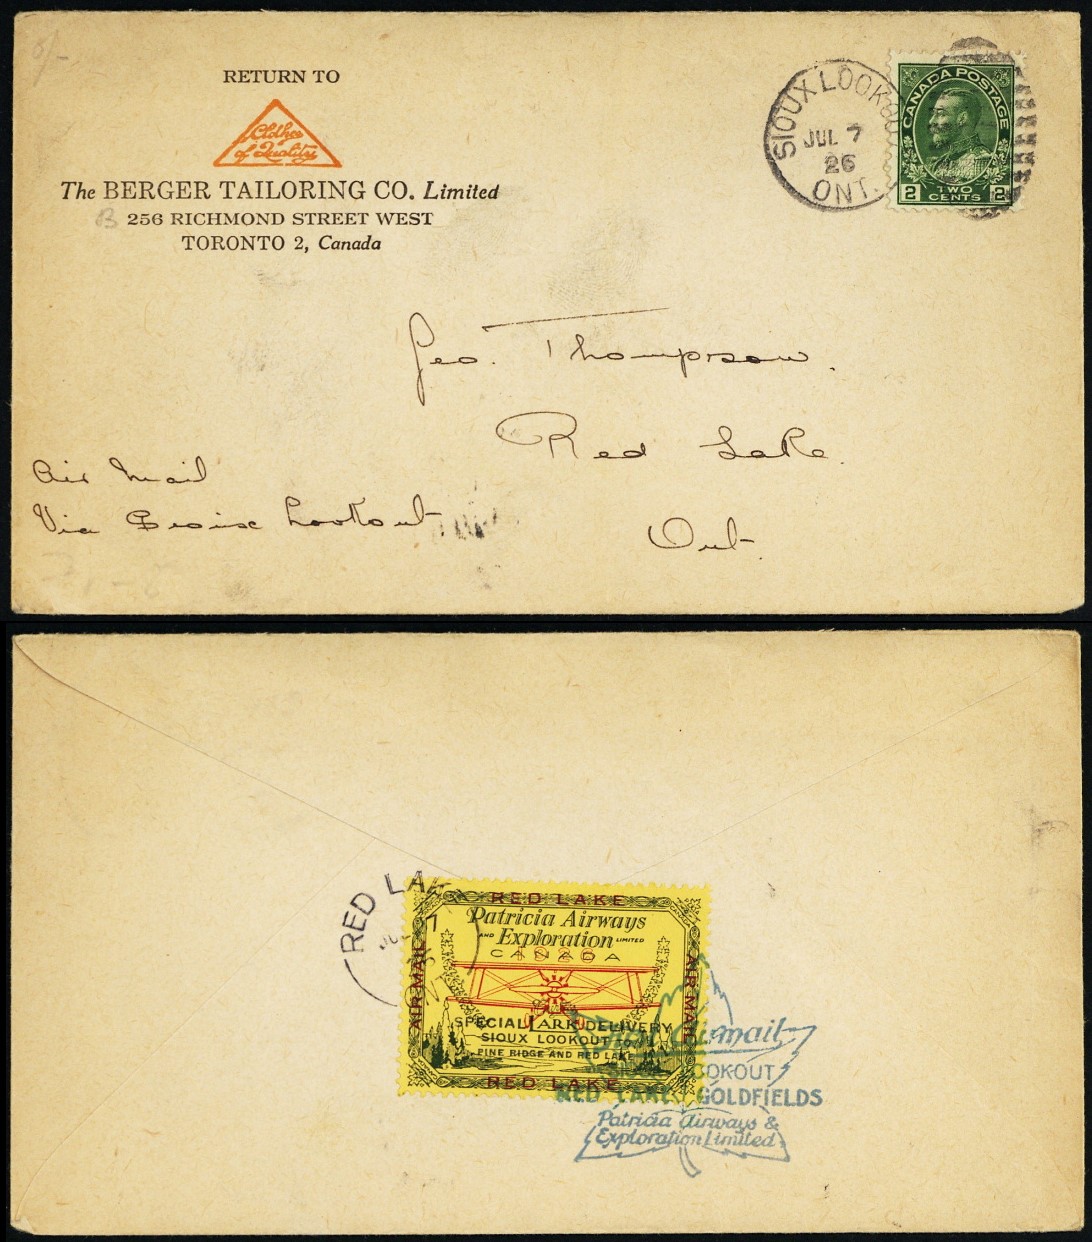 RETURN TO
Clothes
of Quality
The BERGER TAILORING CO. Limited
256 RICHMOND STREET WEST
TORONTO 2, Canada
SIOUX LOOKOU
JUL 7
26
ONT.
CANADA POSTAGE
2 TWO CENTS 2
Geo. Thompson.
Red Lake.
Ont.
Air Mail
Via Sioux Lookout
RED LAK
RED LAKE
Patricia Airways
AND Exploration LIMITED
CANADA
1926
AIR MAIL
AIR MAIL
SPECIAL LARK DELIVERY
SIOUX LOOKOUT TO
PINE RIDGE AND RED LAKE
RED LAKE
Airmail
OOKOUT
RED LAKE GOLDFIELDS
Patricia Airways &
Exploration Limited